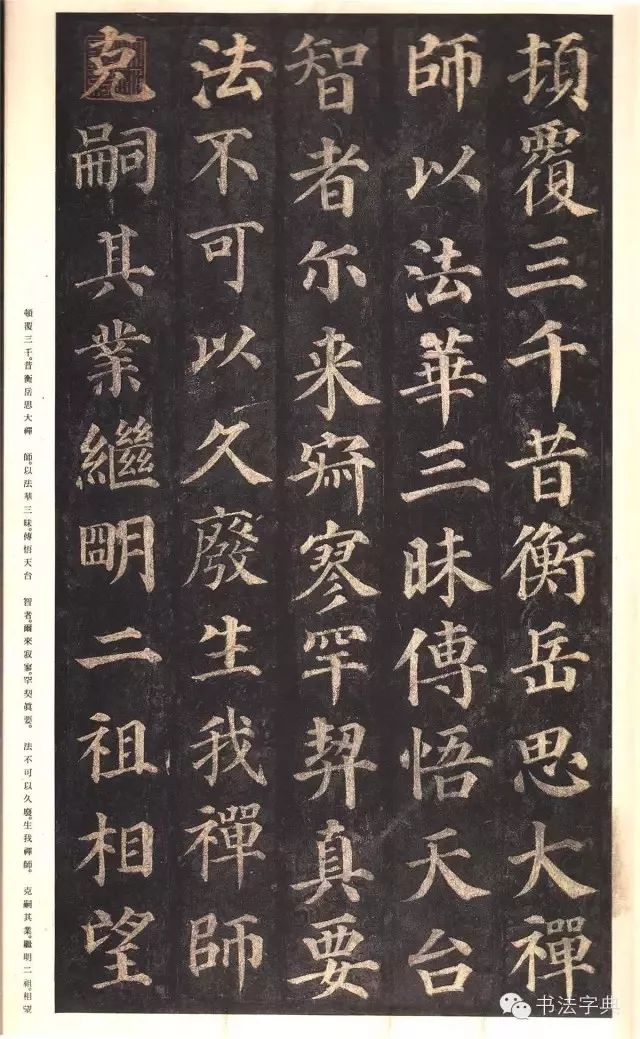 頓覆三千昔衡岳思大禪
師以法華三昧傳悟天台
智者尔来寂寥罕契真要
法不可以久廢生我禪師
克嗣其業繼明二祖相望
頓覆三千。昔衡岳思大禪　師。以法華三昧。傳悟天台　智者。爾來寂寥。罕契眞要。　法不可以久廢。生我禪師。　克嗣其業。繼明二祖。相望
书法字典